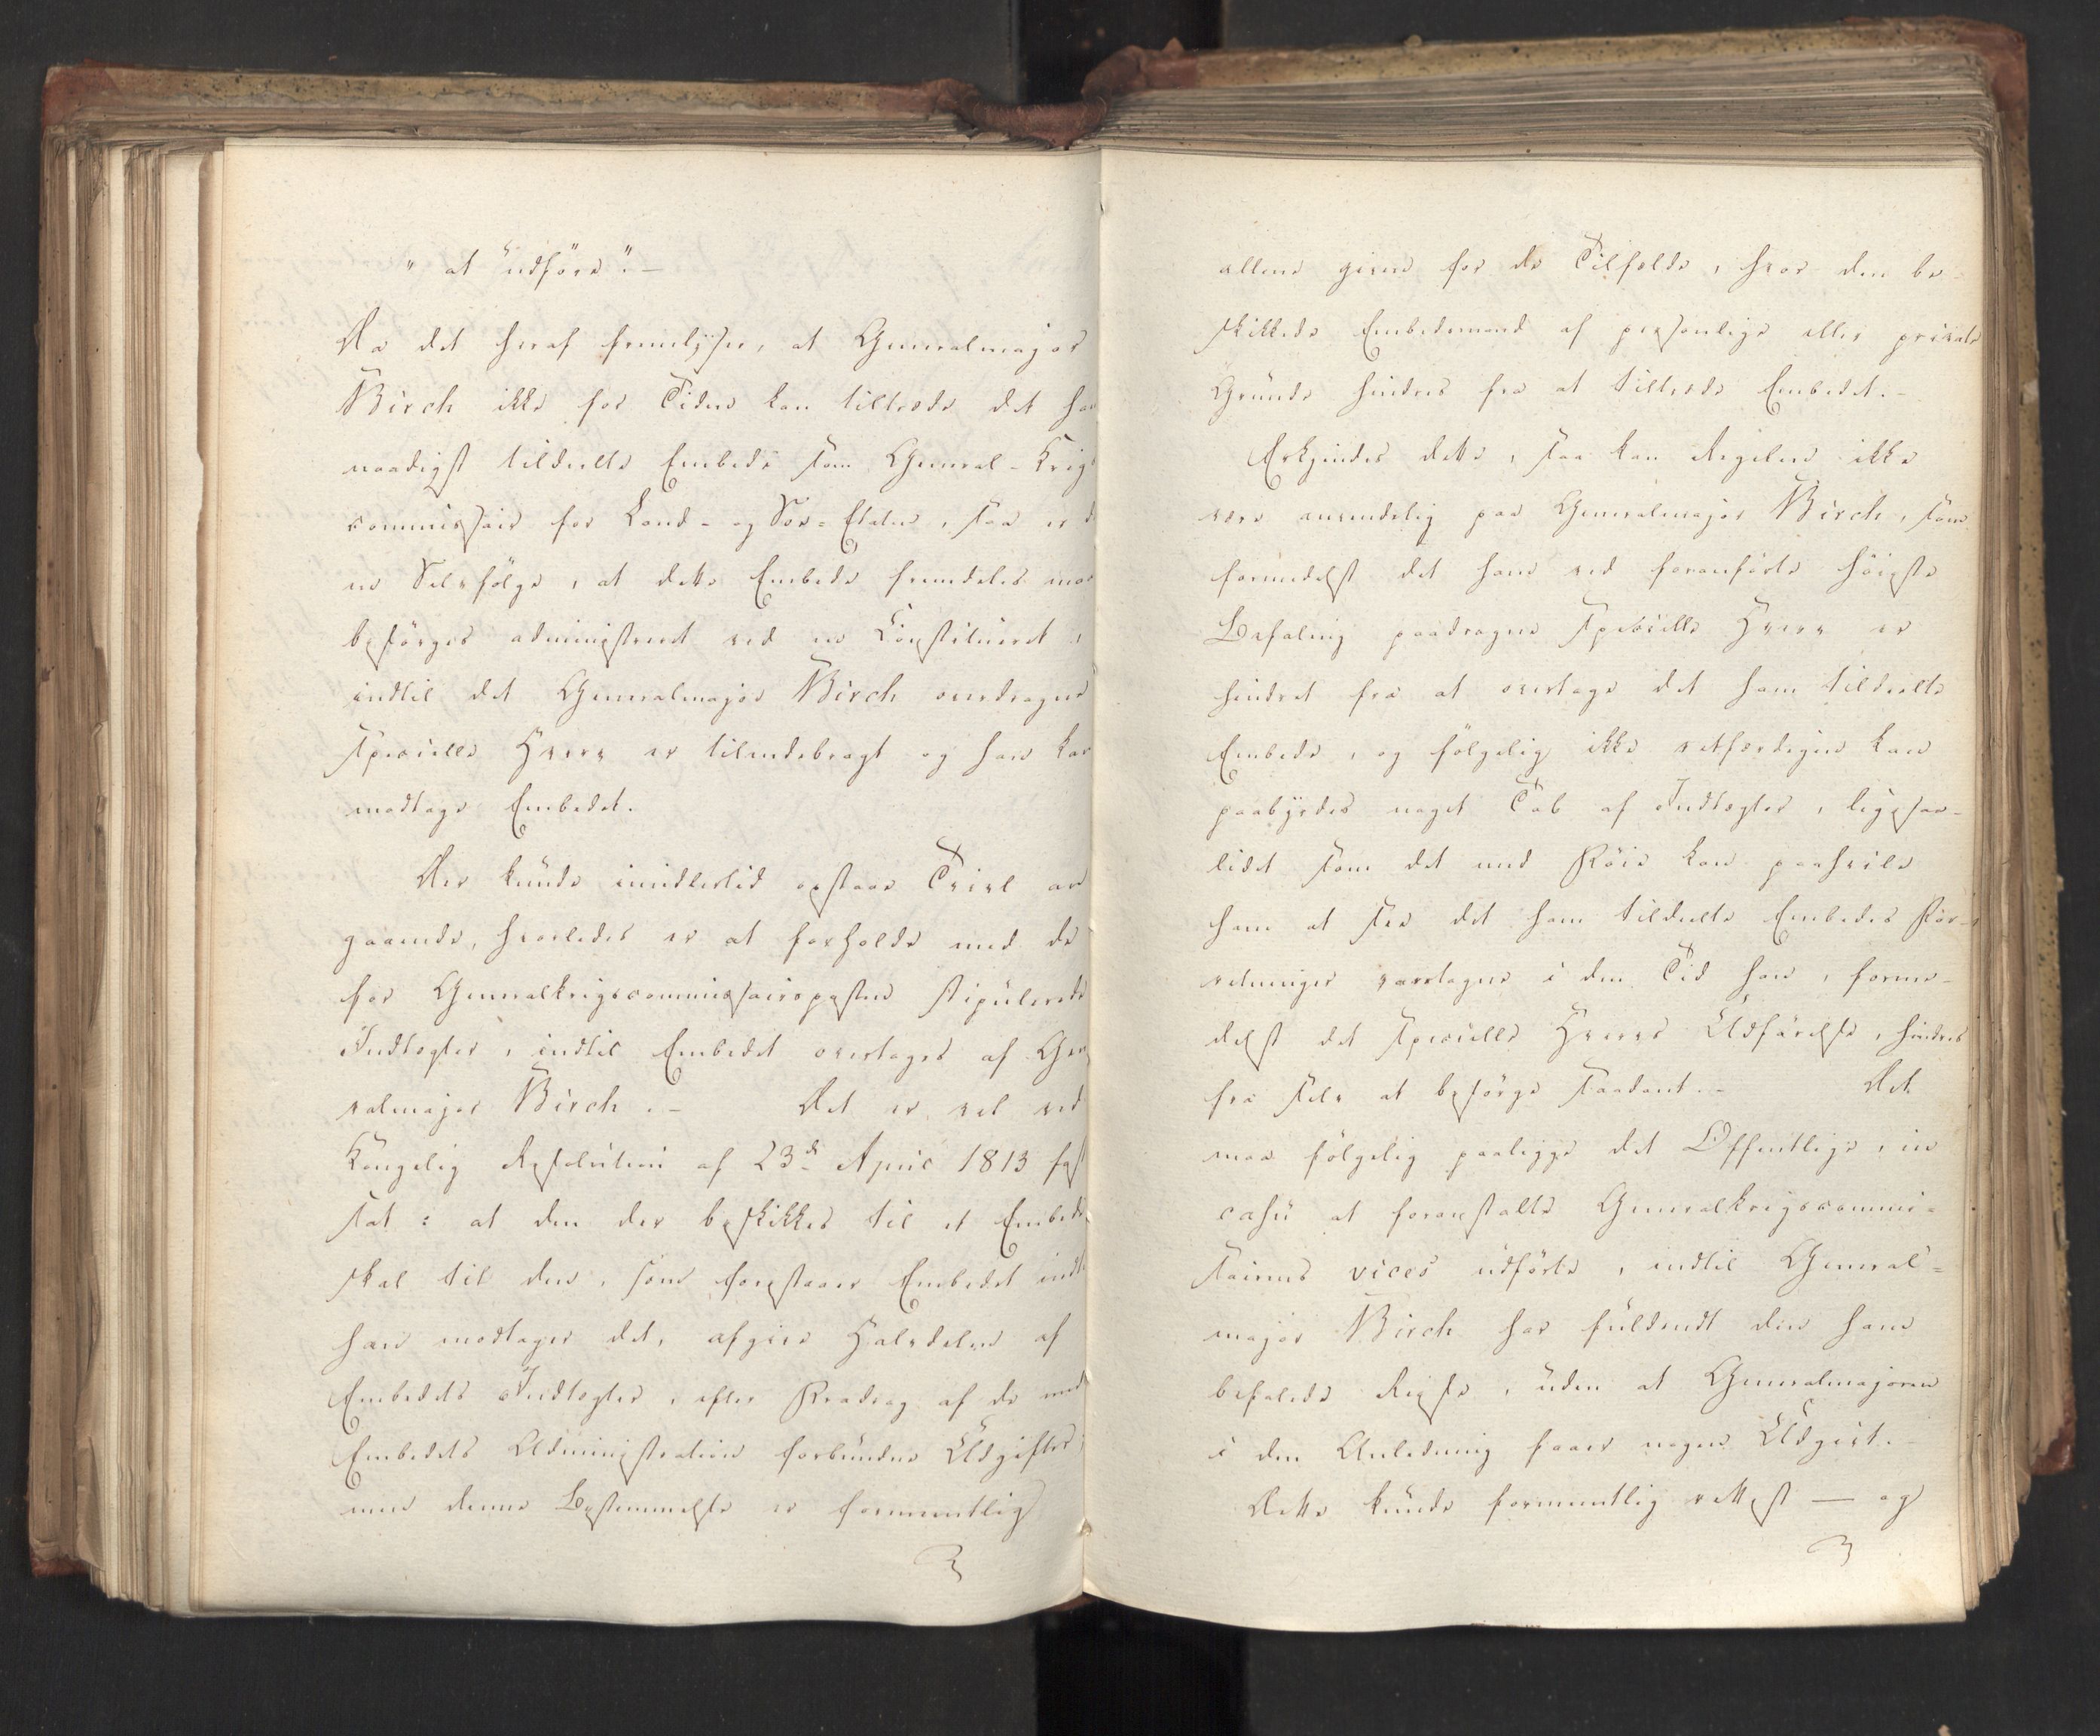 " at udföre". —
Da det heraf fremlyser, at Generalmajor
Birch ikke for Tiden kan tiltræde det ham
naadigst tildeelte Embede som General-Krigs
commissair for Land- og Söe-Etaten, saa er de
en Selvfölge, at dette Embede fremdeles maa
besörges administreret ved en Constitueret,
indtil det Generalmajor Birch overdragne
specielle Hverv er tilendebragt og han kan
modtage Embedet.
Der kunde imidlertid opstaae Tvivl an
gaaende, hvorledes er at forholde med de
for Generalkrigscommissairsposten stipulerede
Indtægter, indtil Embedet overtages af Gene
ralmajor Birch. — Det er vel ved
Kongelig Resolution af 23d April 1813 fast
sat: at den der beskikkes til et Embede
skal til den, som forestaaer Embedet indtil
han modtager det, afgive Halvdelen af
Embedets Indtægter, efter Fradrag af de med
Embedets Administration forbundne Udgifter;
men denne Bestemmelse er formeentlig
allene given for de Tilfælde, hvor den be
skikkede Embedsmand af personlige eller private
Grunde hindres fra at tiltræde Embedet. —
Erkjendes dette, saa kan Regelen ikke
være anvendelig paa Generalmajor Birch, som
formedelst det ham ved foranførte höieste
Befaling paadragne specielle Hverv er
hindret fra at overtage det ham tildeelte
Embede, og fölgelig ikke retfærdigen kan
paabyrdes noget Tab af Indtægter, ligesaa-
lidet som det med Föie kan paahvile
ham at see det ham tildeelte Embedes For-
retninger varetagne i den Tid han, forme-
delst det specielle Hvervs Udförelse, hindres
fra selv at besörge saadant. — Det
maa fölgelig paaligge det Offentlige, in
casu at foranstalte Generalkrigscommis-
sairens vices udförte, indtil General-
major Birch har fuldendt den ham
befalede Reise, uden at Generalmajoren
i den Anledning faaer nogen Udgivt. —
Dette kunde formeentlig rettest — og